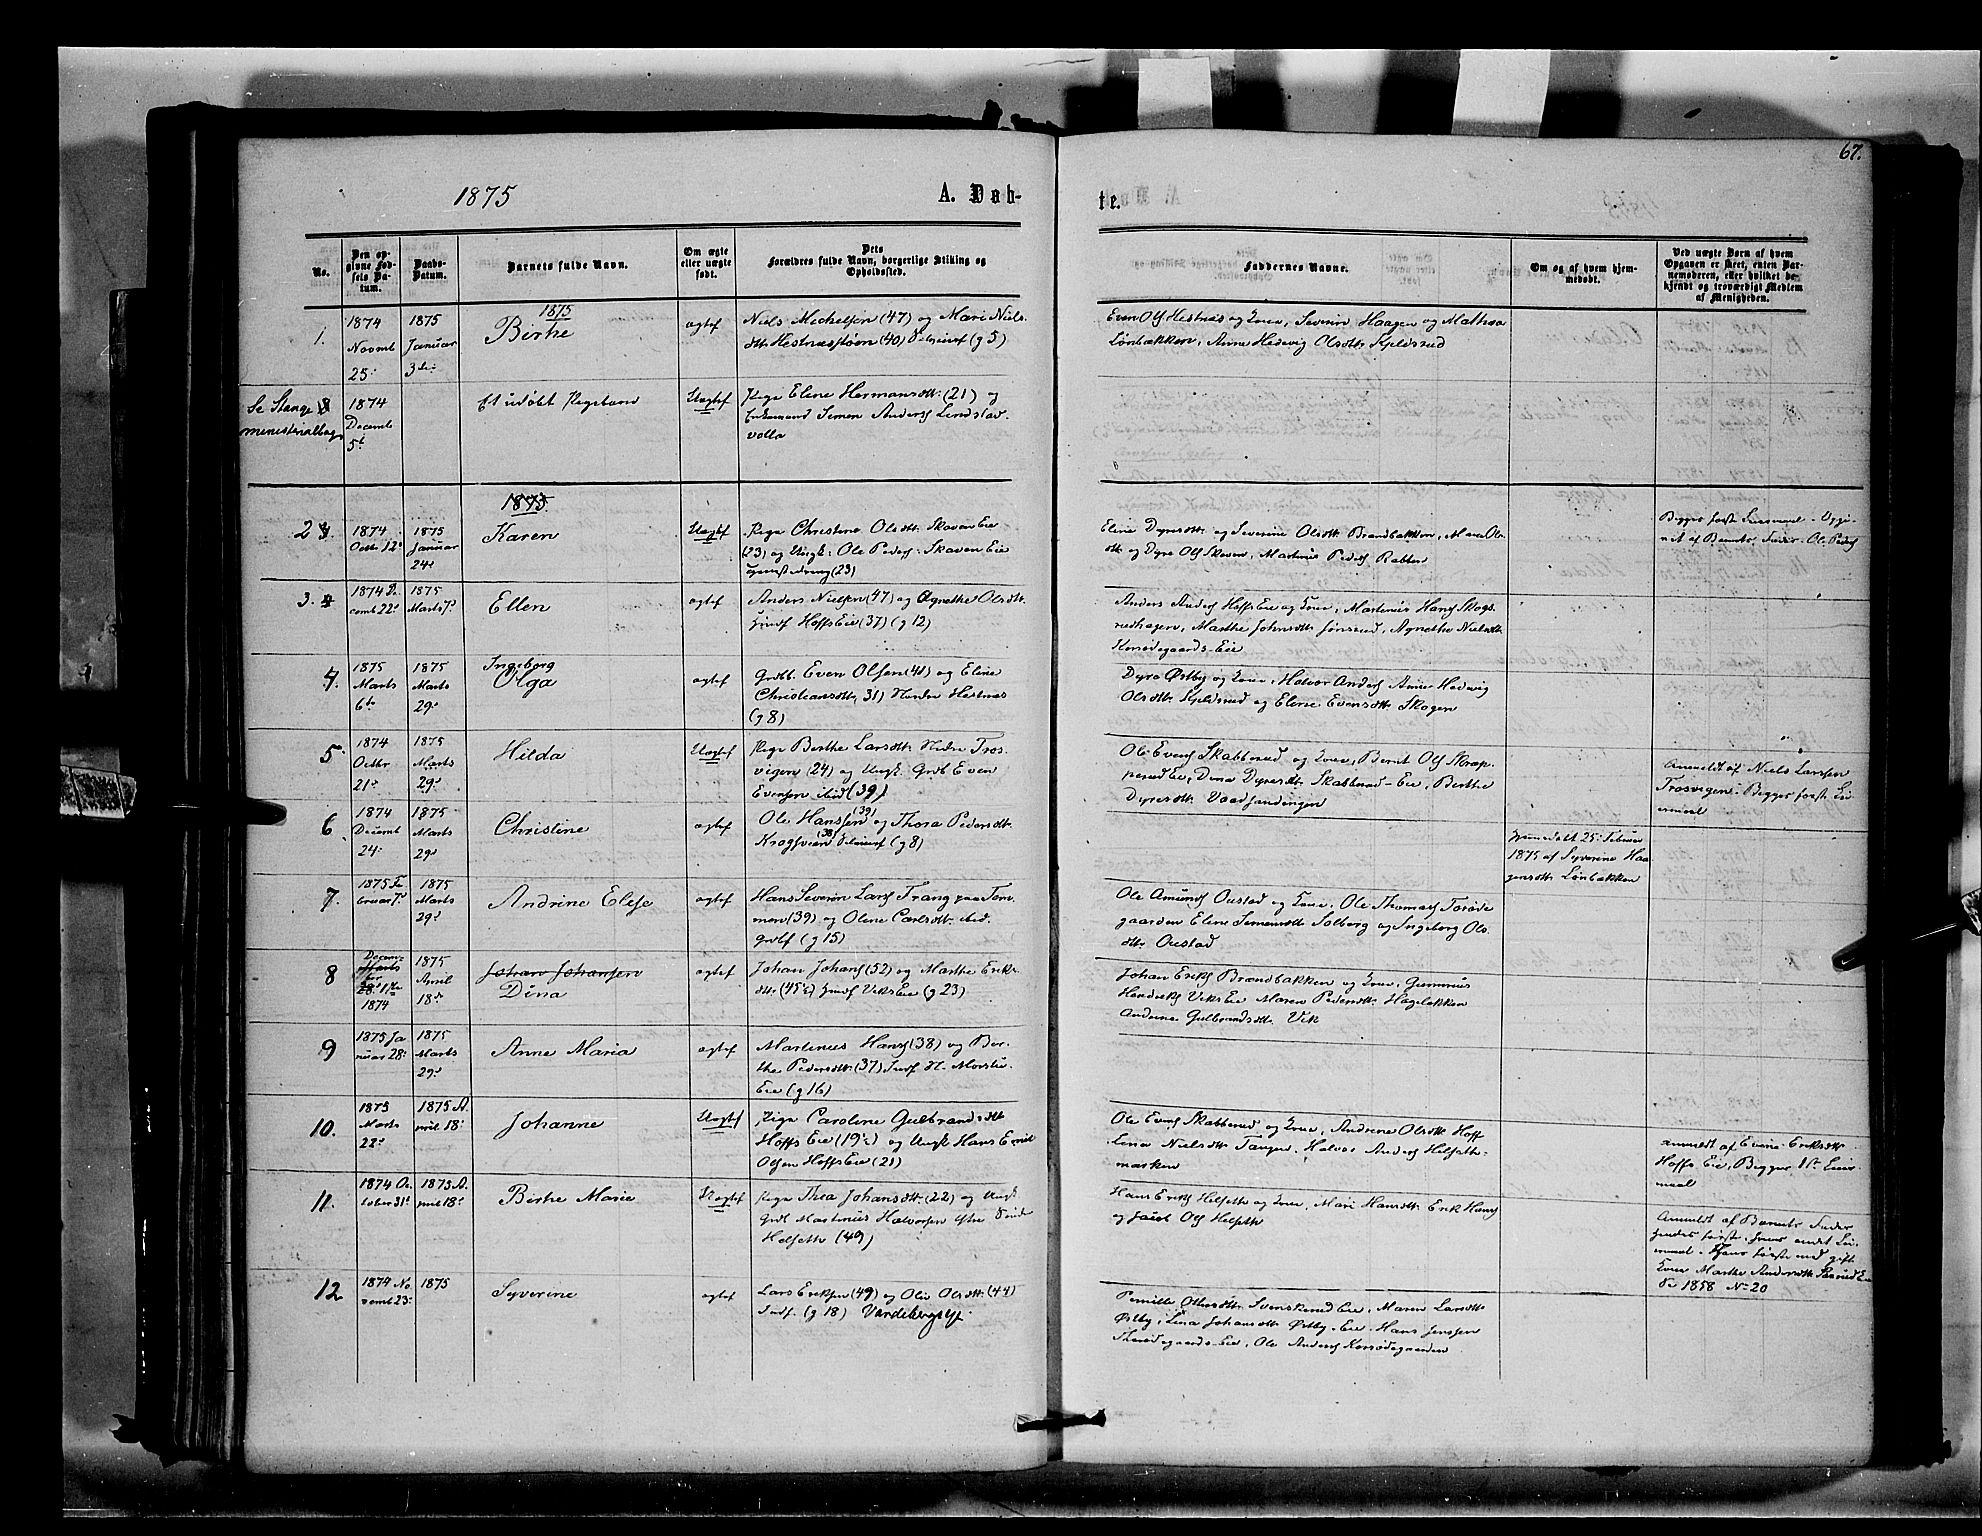 67.
1875 A. Døb-
te.
No.
Den op-
givne Fød-
sels Da-
tum.
Daabs-
Datum.
Barnets fulde Navn.
Om ægte
eller uægte
født.
Dets
Forældres fulde Navn, borgerlige Stilling og
Opholdssted.
Faddernes Navne.
Om og af hvem hjem-
medøbt.
Ved uægte Børn af hvem
Opgaven er skeet, enten Bar-
nemoderen, eller hvilket be-
kjendt og troværdigt Medlem
af Menigheden.
1875
1.
1874
Novmb
25.
1875
Januar
3die
Birthe
ægtef
Niels Michelsen (47) og Mari Niels
dtr. Hestnæstøen (40) (g 5)
Even Ols Hestnæs og Kone, Severin Haagen og Mathea
Lönbækken, Anne Hedevig Olsdtr. Kjeldsrud
Se Stange
ministerialbog
1874
Decemb
5te
Et udøbt Pigebarn
Uægtef
Pige Eline Hermansdtr. (21) og
Enkemand Simen Anders Lindstad-
volla
1875.
2
1874
Octbr 12.
1875
Januar
24.
Karen
Uægtef
Pige Christine Olsdtr. Skaven Eie
(23) og Ungk. Ole Peders. Skaven Eie
(23)
Eline Dyresdtr. og Severine Olsdtr. Brandbakken, Maren Ols
dtr. og Dyre Ols Skaven, Martinus Peders Rabben
Begges første Leiermaal - Opgi-
vet af Barnets Fader Ole Peders
3. 4
1874 De
cemb 22.
1875
Marts 7.
Ellen
ægtef
Anders Nielsen (47) og Agnethe Olsdtr.
Hoffs Eie (37) (g 12)
Anders Anders Hoffs Eie og Kone, Martinus Hans Skogs
rudhagen, Marthe Johnsdtr. Jönsrud, Agnethe Nielsdtr
Korsødegaards-Eie
4.
1875
Marts
6te
1875
Marts
29.
Ingeborg
Olga
ægtef
Grdb. Even Olsen (41) og Eline
Christiansdtr. 31) Nedre Hestnæs
(g 8)
Dyre Østby og Kone, Halvor Anders Anne Hedevig
Olsdtr. Kjeldsrud og Eline Evensdtr. Skogen
5.
1874
Octbr
21.
1875
Marts
29.
Hilda
Uægtef
Pige Berthe Larsdtr. Nedre Tros
vigen (24) og Ungk. Grdb Even
Evensen ibid (39)
Ole Evens Skabberud og Kone, Bernt Ols Skrap-
perud Eie, Dina Dyresdtr. Skabberud-Eie, Berthe
Dyresdtr. Vaadsandengen
Anmeldt af Niels Larsen
Trosvigen. Begges første Lei
ermaal
6
1874
Decemb
24.
1875
Marts
29.
Christine
ægtef
Ole Hanssen (39) og Thora Pedersdtr.
Kragsveen (38) (g 8)
Hjemmedøbt 25. Februar
1875 af Syverine Haa
gensdtr. Lönbækken
7.
1875 Fe
bruar 7.
1875
Marts
29.
Andrine Elise
ægtef
Hans Severin Lars Trang paa Tom-
men (39) og Oline Carlsdtr. ibid.
Grdbf (g 15)
Ole Amunds Oustad og Kone, Ole Thomas Torøde
gaarden Eline Simensdtr Solberg og Ingeborg Ols
dtr. Oustad
8
Decem-
Marts
ber
28. 1ste
1874
1875
April
18de
Johan Johansen
Dina
ægtef
Johan Johans (52) og Marthe Eriks
dtr. (45½) Viks Eie (g 23)
Johan Eriks Brændbakken og Kone, Gunnerius
Hendriks Viks Eie Maren Pedersdtr. Hagelökken
Andrine Gulbrandsdtr. Vik
9
1875 Ja
nuar 28.
1875
Marts
29.
Anne Maria
ægtef
Martinus Hans (38) og Ber-
the Pedersdtr. (37) Indf N. Morstu-
Eie (g 16)
10.
1875
Marts
22.
1875 A.
pril 18.
Johanne
Uægtef
Pige Caroline Gulbrandsdtr
Hoffs Eie (19½) og Ungk Hans Emil
Olsen Hoffs Eie (21)
Ole Evens Skabberud og Kone, Andrine Olsdtr. Hoff
Lina Nielsdtr. Tangen, Halvor Anders Helseth-
marken
Anmeldt af Eline Eriksdtr.
Hoffs Eie, Begges 1ste Leier
maal
11.
1874 Oc
tober 31.
1875 A.
pril 18.
Birthe Marie
Uægtef
Pige Thea Johansdtr. (22) og Ungk
Grdb. Martinus Halvorsen
Helseth (49)
Hans Eriks Helseth og Kone, Mari Hansdtr. Erik Hans
og Jacob Ols Helseth
Anmeldt af Barnets Fader
hendes første, hans andet Lei-
ermaal. Hans første med gift
Kone Marthe Andersdtr. Eie
Se 1858 No 20
12
1874 No
vemb 23.
1875
Syverine
ægtef
Lars Eriksen (49) og Olia Olsdtr. (44)
Indf. (g 18) Vardeberg
Pernille Olsdtr. Svenskerud Eie, Maren Larsdtr
Østby, Lina Johansdtr. Østby-Eie, Hans Jenssen
Thorødegaards-Eie, Ole Anders Korsødegaarden